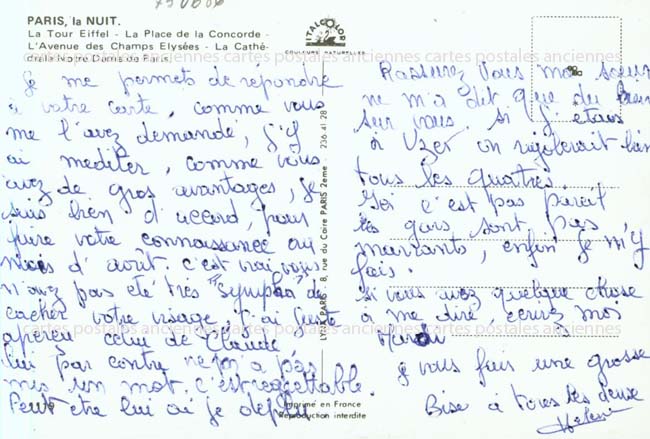 PARIS, la NUIT.
La Tour Eiffel - La Place de la Concorde -
L'Avenue des Champs Elysées - La Cathé-
drale Notre Dame de Paris.
ITALCOLOR
COULEURS NATURELLES
cartes postales anciennes cartes postales anciennes cartes postales anciennes
Je me permets de repondre
à votre carte, comme vous
me l'avez demandé, j'y
ai mediter, comme vous
avez de gros avantages, je
suis bien d'accord, pour
faire votre connaissance au
mois d'août. c'est vrai vous
n'avez pas été très "sympha" de
cacher votre visage, j'ai juste
aperçu celui de Claude
lui par contre ne m'a pas
mis un mot. c'est regrettable.
Peut etre lui ai je deplu
LYNA PARIS 8, rue du Caire PARIS 2eme 236 41 28
Rassurez vous ma soeur
ne m'a dit que du bien
sur vous. si j'étais
à Uzer on rigolerait bien
tous les quatres.
Ici c'est pas pareil
les gars sont pas
marrants, enfin je m'y
fais.
Si vous avez quelque chose
à me dire, ecrivez moi
cartes postales anciennes cartes postales anciennes cartes postales anciennes
je vous fais une grosse
Bise à tous les deux
Imprimé en France
Reproduction interdite